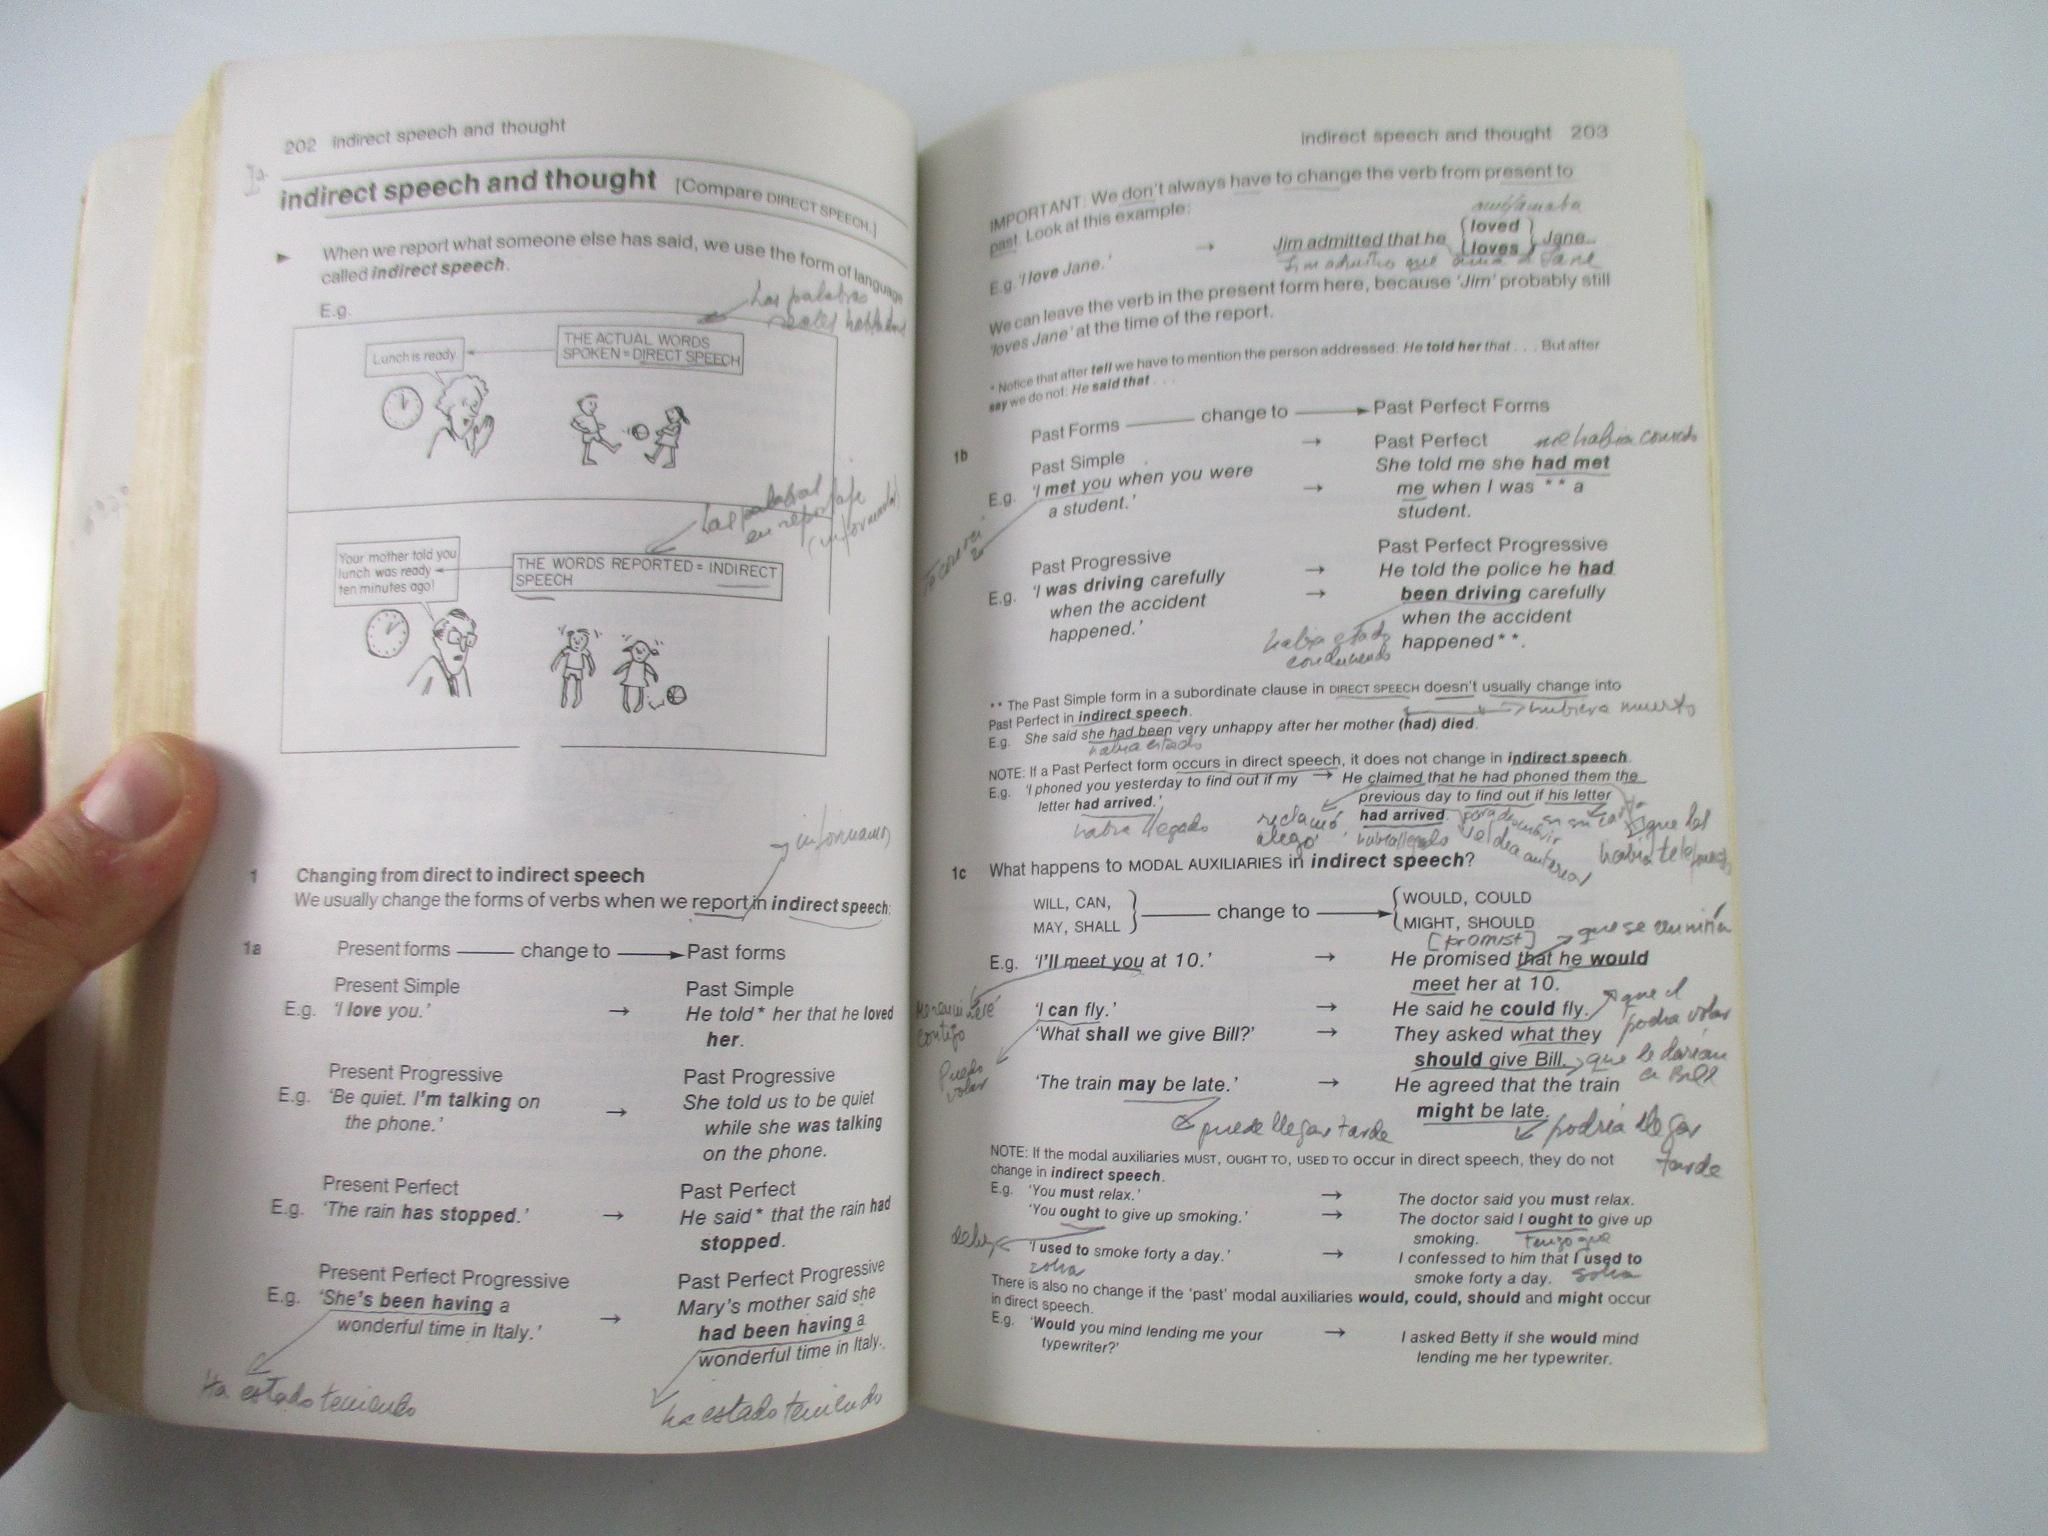 202 indirect speech and thought
indirect speech and thought [Compare DIRECT SPEECH.]
► When we report what someone else has said, we use the form of language
called indirect speech.
E.g.
Las palabras
reales
Lunch is ready
THE ACTUAL WORDS
SPOKEN = DIRECT SPEECH
Las palabras
en reportaje
Your mother told you
lunch was ready
ten minutes ago!
THE WORDS REPORTED = INDIRECT
SPEECH
informamos
1 Changing from direct to indirect speech
We usually change the forms of verbs when we report in indirect speech:
1a Present forms change to Past forms
Present Simple Past Simple
E.g. 'I love you.' → He told* her that he loved
her.
Present Progressive Past Progressive
E.g. 'Be quiet. I'm talking on → She told us to be quiet
the phone.' while she was talking
on the phone.
Present Perfect Past Perfect
E.g. 'The rain has stopped.' → He said* that the rain had
stopped.
Present Perfect Progressive Past Perfect Progressive
E.g. 'She's been having a → Mary's mother said she
wonderful time in Italy.' had been having a
wonderful time in Italy.
Ha estado teniendo
ha estado teniendo
indirect speech and thought 203
IMPORTANT: We don't always have to change the verb from present to
past. Look at this example:
E.g. 'I love Jane.' → Jim admitted that he {loved / loves} Jane.
Jim admitió que ama a Jane
We can leave the verb in the present form here, because 'Jim' probably still
'loves Jane' at the time of the report.
* Notice that after tell we have to mention the person addressed: He told her that . . . But after
say we do not: He said that . . .
Past Forms change to Past Perfect Forms
1b Past Simple → Past Perfect
me había conocido
E.g. 'I met you when you were → She told me she had met
a student.' me when I was ** a
student.
Te conocí
Past Progressive → Past Perfect Progressive
E.g. 'I was driving carefully → He told the police he had
when the accident been driving carefully
happened.' when the accident
happened**.
había estado
conduciendo
** The Past Simple form in a subordinate clause in DIRECT SPEECH doesn't usually change into
Past Perfect in indirect speech.
hubiera muerto
E.g. She said she had been very unhappy after her mother (had) died.
había estado
NOTE: If a Past Perfect form occurs in direct speech, it does not change in indirect speech.
E.g. 'I phoned you yesterday to find out if my → He claimed that he had phoned them the
letter had arrived.' previous day to find out if his letter
had arrived.
había llegado
reclamó
alegó
para descubrir
el dia anterior
que les
1c What happens to MODAL AUXILIARIES in indirect speech?
WILL, CAN, WOULD, COULD
MAY, SHALL change to MIGHT, SHOULD
[promist]
que se reuniría
E.g. 'I'll meet you at 10.' → He promised that he would
meet her at 10.
Me reuniré
contigo
'I can fly.' → He said he could fly.
que el
podia volar
'What shall we give Bill?' → They asked what they
should give Bill.
que le darían
a Bill
Puedo
volar
'The train may be late.' → He agreed that the train
might be late.
puede llegar tarde
podría llegar
tarde
NOTE: If the modal auxiliaries MUST, OUGHT TO, USED TO occur in direct speech, they do not
change in indirect speech.
E.g. 'You must relax.' → The doctor said you must relax.
'You ought to give up smoking.' → The doctor said I ought to give up
smoking.
Tengo que
'I used to smoke forty a day.' → I confessed to him that I used to
smoke forty a day.
solia
solia
There is also no change if the 'past' modal auxiliaries would, could, should and might occur
in direct speech.
E.g. 'Would you mind lending me your → I asked Betty if she would mind
typewriter?' lending me her typewriter.